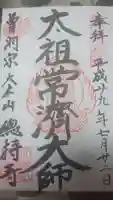 奉拝
平成廿九年七月廿二日
太祖常濟大師
曹洞宗大本山
總持寺